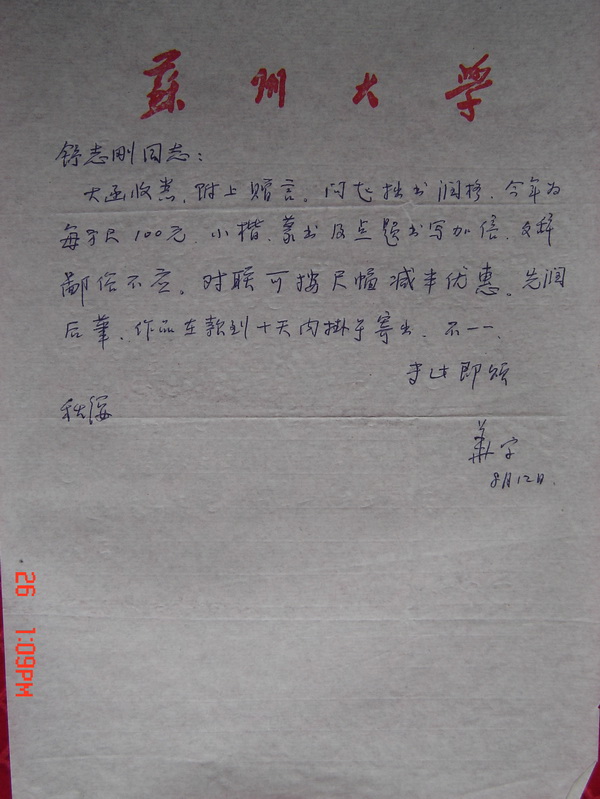 蘇州大学
舒志刚同志：
大函收悉，附上赠言。问及拙书润格，今年为
每方尺100元，小楷、篆书及点题书写加倍，文辞
鄙俗不应。对联可按尺幅减半优惠。先润
后笔，作品在款到十天内掛号寄出，不一一，
专此即颂
秋绥
华 字
8月12日
26 1:09PM